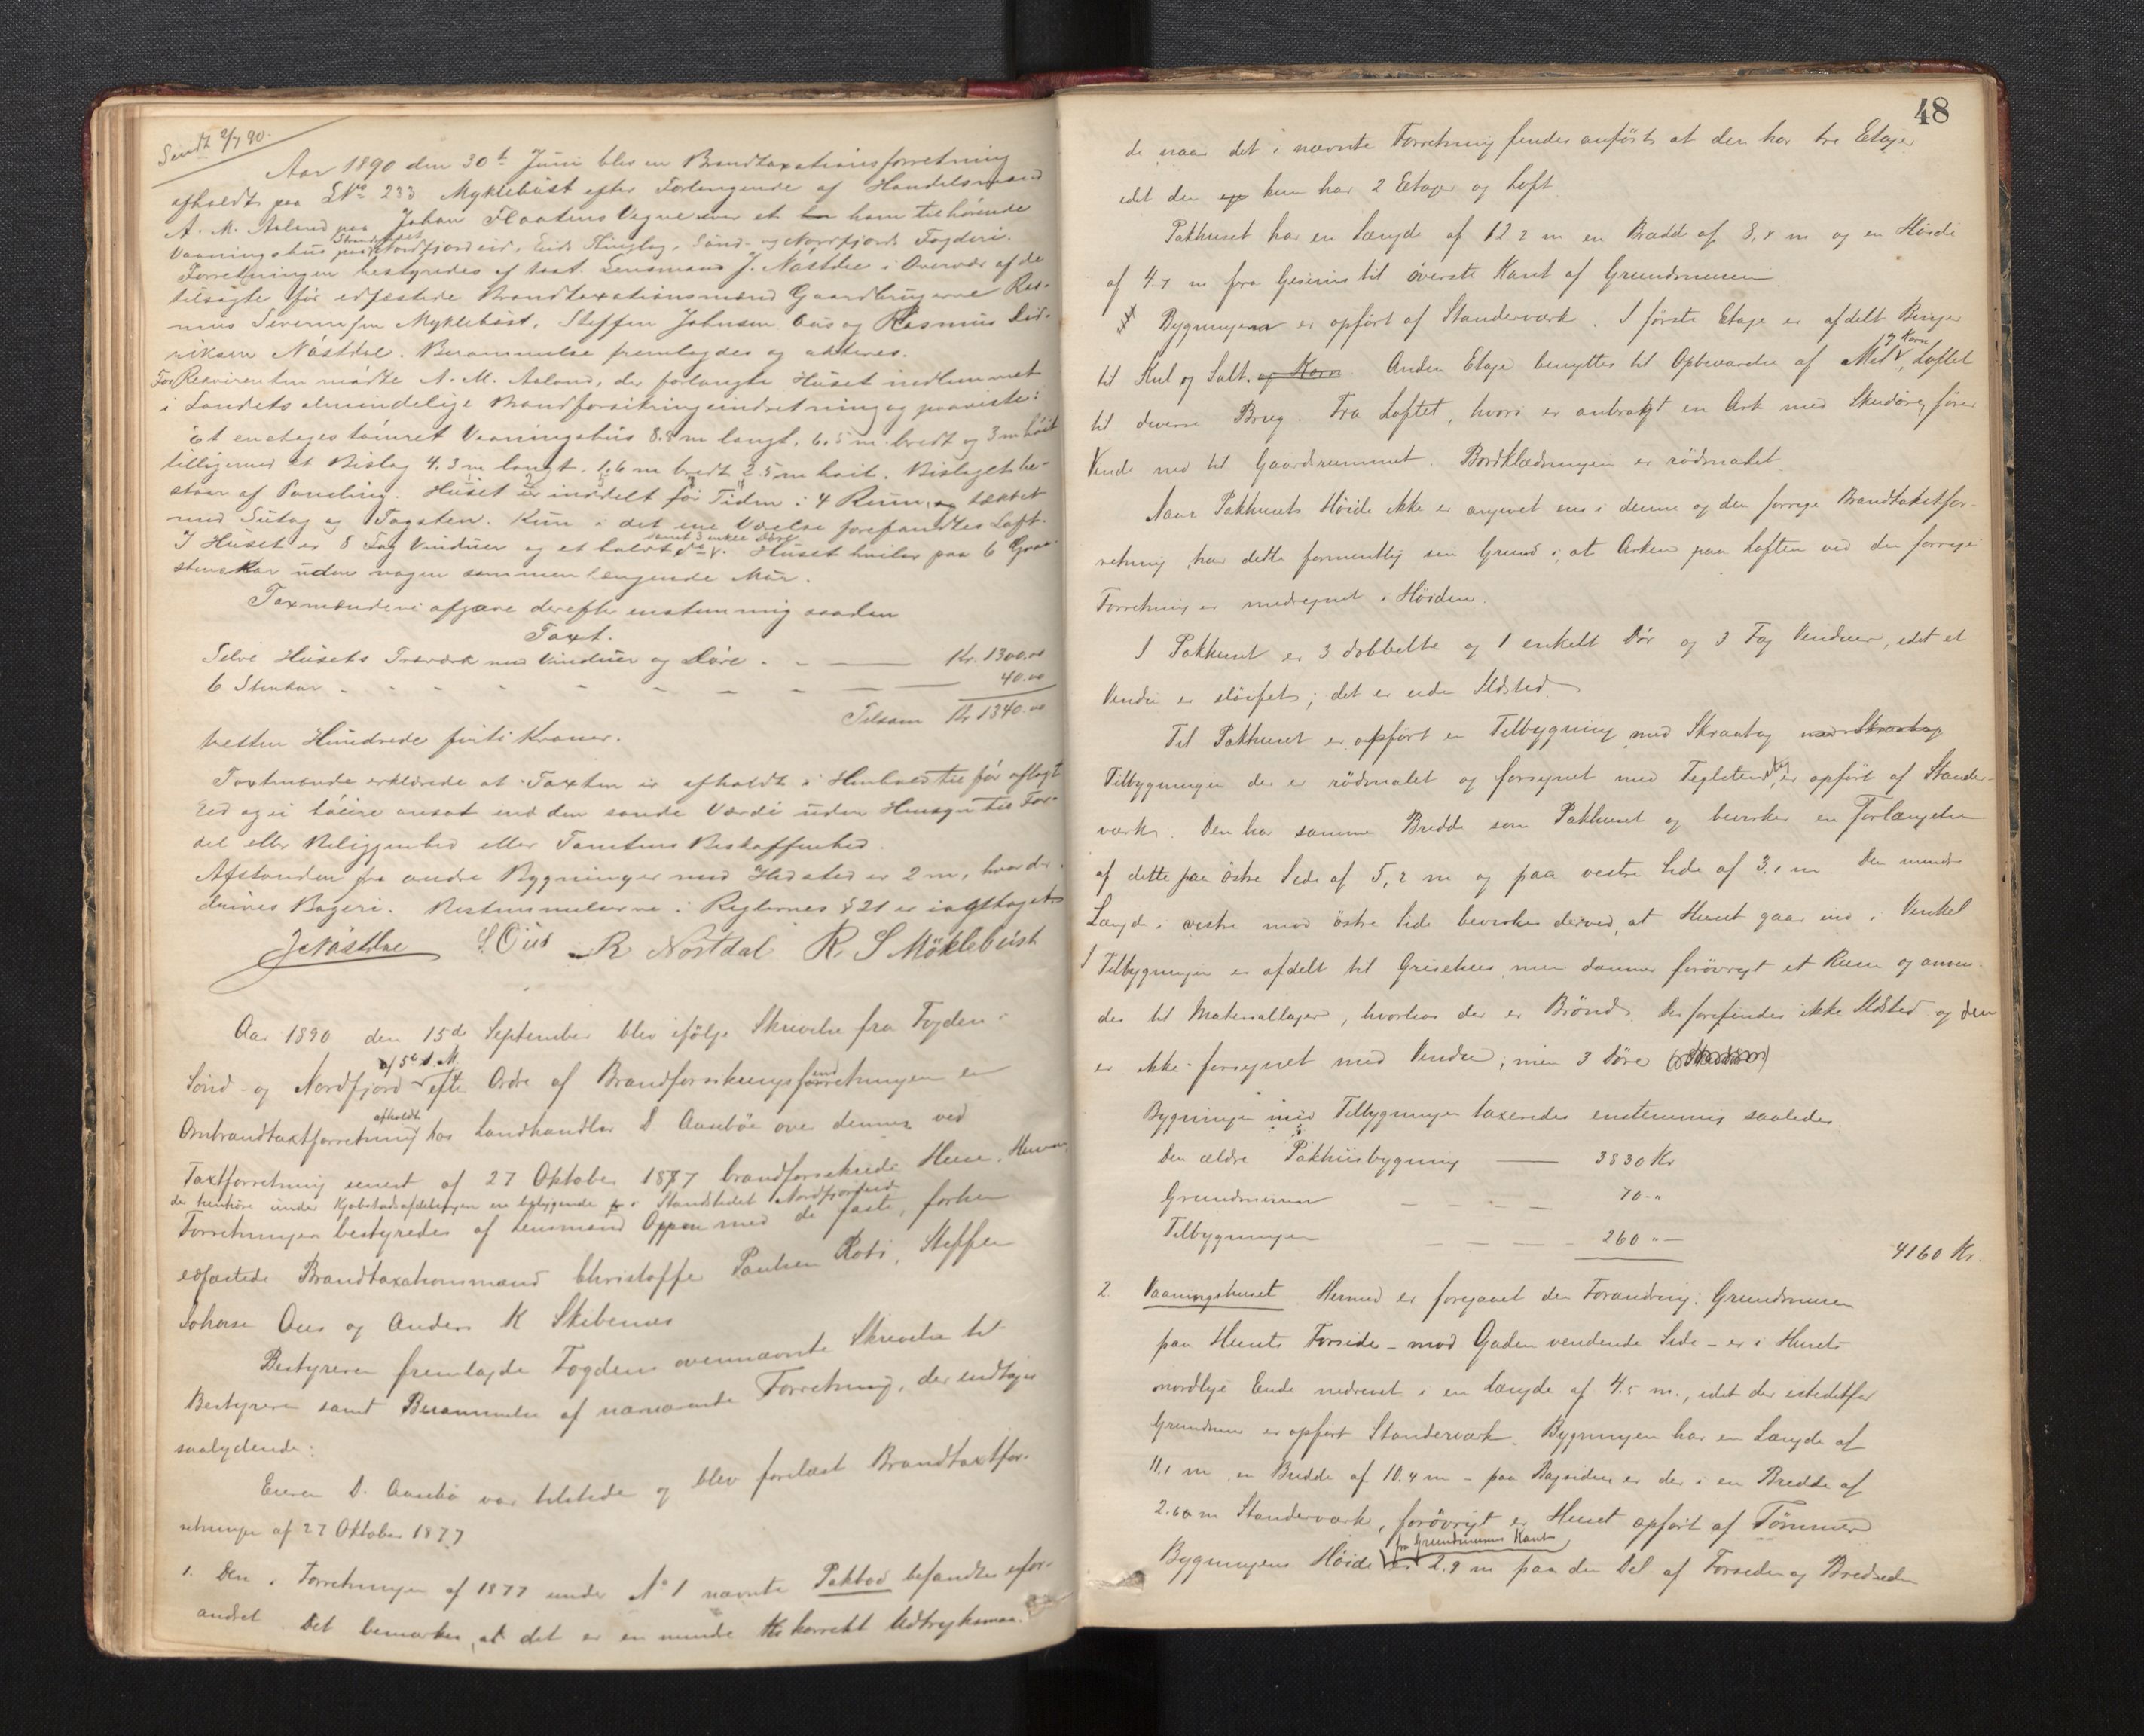 Sendt 2/7 90.
Aar 1890 den 30te Juni blev en Brandtaxationsforretning
afholdt paa LNo 233 Myklebust efter Forlangende af Handelsmand
A. M. Aaland paa Johan Flaatens Vegne over et ham tilhørende
Vaaningshus paa Strandstedet Nordfjordeid, Eids Thinglag, Sønd- og Nordfjords Fogderi.
Forretningen bestyredes af const. Lensmand J. Nåstdal i Overvær af de
tilsagte før edfæstede Brandtaxationsmænd Gaardbrugerne Ras-
mus Severinsen Myklebust, Steffen Johnsen Ous og Rasmus Did-
riksen Nåstdal. Berammelse fremlagdes og akteres.
For Rekvirenten mødte A. M. Aaland, der forlangte Huset indlemmet
i Landets almindelige Brandforsikringsindretning og paaviste:
Et enetages tømret Vaaningshus 8.8 m langt, 6.5 m bredt og 3 m høit
tilligemed et Bislag 4.3 m langt, 1.6 m bredt, 2.5 m høit. Bislaget be-
staar af Paneling. Huset er inddelt for Tiden i 4 Rum, og tækket
med Sutag og Tagsten. Kun i det ene Værelse forefandtes Loft.
I Huset er 8 Fag Vinduer og et halvt do samt 3 enkle Døre. Huset hviler paa 6 Graa-
stenskar uden nogen sammenhængende Mur.
Taxmændene afgave derefter enstemmig saadan
Taxt.
Selve Husets Træværk med Vinduer og Døre - - — Kr. 1300.00
6 Stenkar - - - - - - — 40.00
Tilsam Kr 1340.00
tretten Hundrede firti Kroner.
Taxtmændene erklærede at Taxten er afholdt i Henhold til før aflagt
Ed og ei høiere ansat end den sande Værdi uden Hensyn til For-
del eller Beliggenhed eller Tomtens Beskaffenhed.
Afstanden fra andre Bygninger med Ildsted er 2 m, hvor der
drives Bageri. Bestemmelserne i Reglernes § 21 er iagttaget.
J. Nåstdal S. Ous R Nostdal R. S Möklebust
Aar 1890 den 15de September blev ifølge Skrivelse fra Fogden i
Sønd- og Nordfjord af 5te d. M. efter Ordre af Brandforsikringsindretningen en
Ombrandtaxtforretning afholdt hos Landhandler D. Aanbøe over dennes ved
Taxtforretning senest af 27 Oktober 1877 brandforsikrede Huse, Husene,
der henhøre under Kjøbstadsafdelingen er beliggende i Strandstedet Nordfjordeid
Forretningen bestyredes af Lensmand Oppen med de faste, forhen
edfæstede Brandtaxationsmænd Christoffer Paulsen Roti, Steffen
Johnsen Ous og Anders K Skibenes
Bestyreren fremlagde Fogdens ovennævnte Skrivelse til
Bestyreren samt Berammelse af nærværende Forretning, der indtages
saalydende:
Eieren D. Aanbø var tilstede og blev forelæst Brandtaxtfor-
retningen af 27 Oktober 1877
1. Den i Forretningen af 1877 under No 1 nævnte Pakbod befandtes ufor-
andret. Det bemærkes, at det er en mindre korrekt Udtryksmaa-
48
de naar det i nævnte Forretning findes anført at den har tre Etager
idet den kun har 2 Etager og Loft
Pakhuset har en Længde af 12 2 m en Bredde af 8,8 m og en Høide
af 4.7 m fra Gesims til øverste Kant af Grundmuren
Bygningen er opført af Standerværk. I første Etage er afdelt Binger
til Kul og Salt. og Korn Anden Etage benyttes til Opbevarelse af Mel og Korn, Loftet
til diverse Brug. Fra Loftet, hvori er anbragt en Ark med Skuddøre, fører
Vinde ned til Gaardsrummet. Bordklædningen er rødmalet
Naar Pakhusets Høide ikke er angivet ens i denne og den forrige Brandtakstfor-
retning har dette formentlig sin Grund i, at Arken paa Loftet ved den forrige
Forretning er medregnet i Høiden.
I Pakhuset er 3 dobbelte og 1 enkelt Dør og 3 Fag Vinduer, idet et
Vindu er sløifet; det er uden Ildsted.
Til Pakhuset er opført en Tilbygning med Skraatag med Skraatag
Tilbygningen der er rødmalet og forsynet med Teglstenstag, er opført af Stander-
værk. Den har samme Bredde som Pakhuset og bevirker en Forlængelse
af dette paa østre Side af 5,2 m og paa vestre Side af 3.1 m Den mindre
Længde i vestre mod østre Side bevirkes derved, at Huset gaar ind i Vinkel
I Tilbygningen er afdelt til Grisehus men danner forøvrigt et Rum og anven-
des til Materiallager, hvorhos der er Brønd. Der forefindes ikke Ildsted og den
er ikke forsynet med Vinduer; men 3 Døre
Bygningen med Tilbygningen taxeredes enstemmig saaledes.
Den ældre Pakhusbygning — 3830 Kr
Grundmuren - - - - 70 - "
Tilbygningen - - - 260 " — 4160 Kr.
2. Vaaningshuset Hermed er foregaaet den Forandring: Grundmuren
paa Husets Forside - mod Gaden vendende Side - er i Husets
nordlige Ende nedrevet i en Længde af 4.5 m., idet der istedetfor
Grundmur er opført Standerværk. Bygningen har en Længde af
11.1 m, en Bredde af 10.4 m - paa Bagsiden er der i en Bredde af
2.60 m Standerværk, forøvrigt er Huset opført af Tømmer
Bygningens Høide fra Grundmurens Kant er 2.9 m paa den Del af Forsiden og Bredsiden